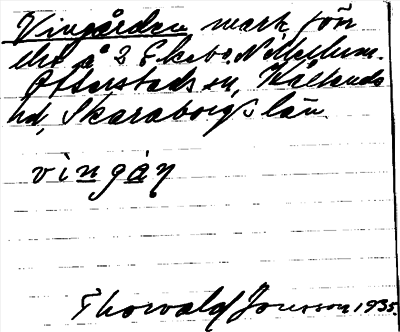 Vingården mark fön
lht å 2 Ekebo, N Mellum.
Otterstads sn, Kållands
hd, Skaraborgs län.
vingån
Thorwald Jonsson 1935.